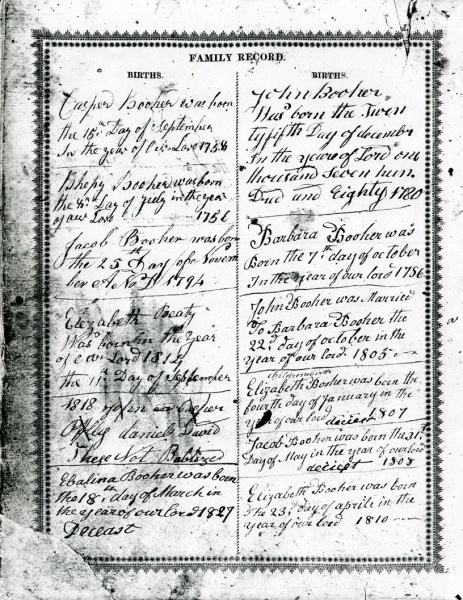 FAMILY RECORD.
BIRTHS.
Casper Booher was born
the 15th Day of September
In the year of Our Lord 1758
Booher was born
the 8th Day of July in the year
of our Lord 1751
Jacob Booher was born
the 25th Day of Novem
ber A 1794
Elezabeth Beaty
Was born in the Year
of our Lord 1812
the 11th Day of September
1818
daniel David
These Not Babtized
Ebalina Booher was born
tho 18th day of March in
the year of our lord 1827
Deceast
BIRTHS.
John Booher
Was born the Twen
tyfifth Day of december
In the year of Lord one
thousand seven hun
Dred and Eighty 1780
Barbara Booher was
Born the 7th day of october
In the year of our lord 1786
John Booher was Married
To Barbara Booher the
22d day of october in the
year of our lord 1805
Elizabeth Booher was born the
fourth day of January in the
year of our lord deciest 1807
Jacob Booher was born the 31st
Day of May in the year of our lord
deciest 1808
Elizabeth Booher was born
the 23d day of aprile in the
year of our lord 1810